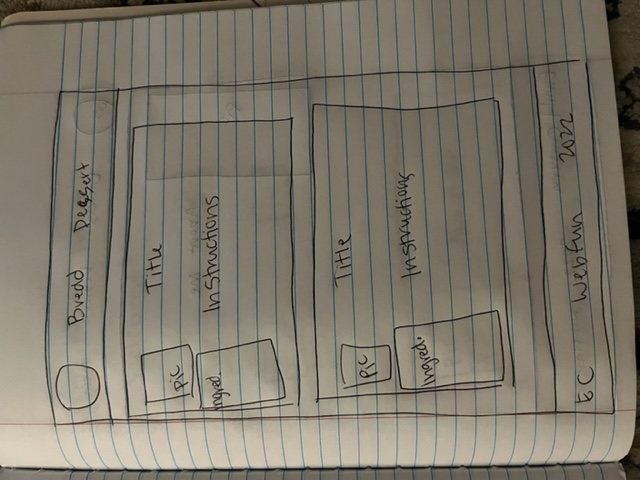 Bread Dessert
Title
Pic
Ingred.
Instructions
Title
Pic
Ingred.
Instructions
EC Webfun 2022